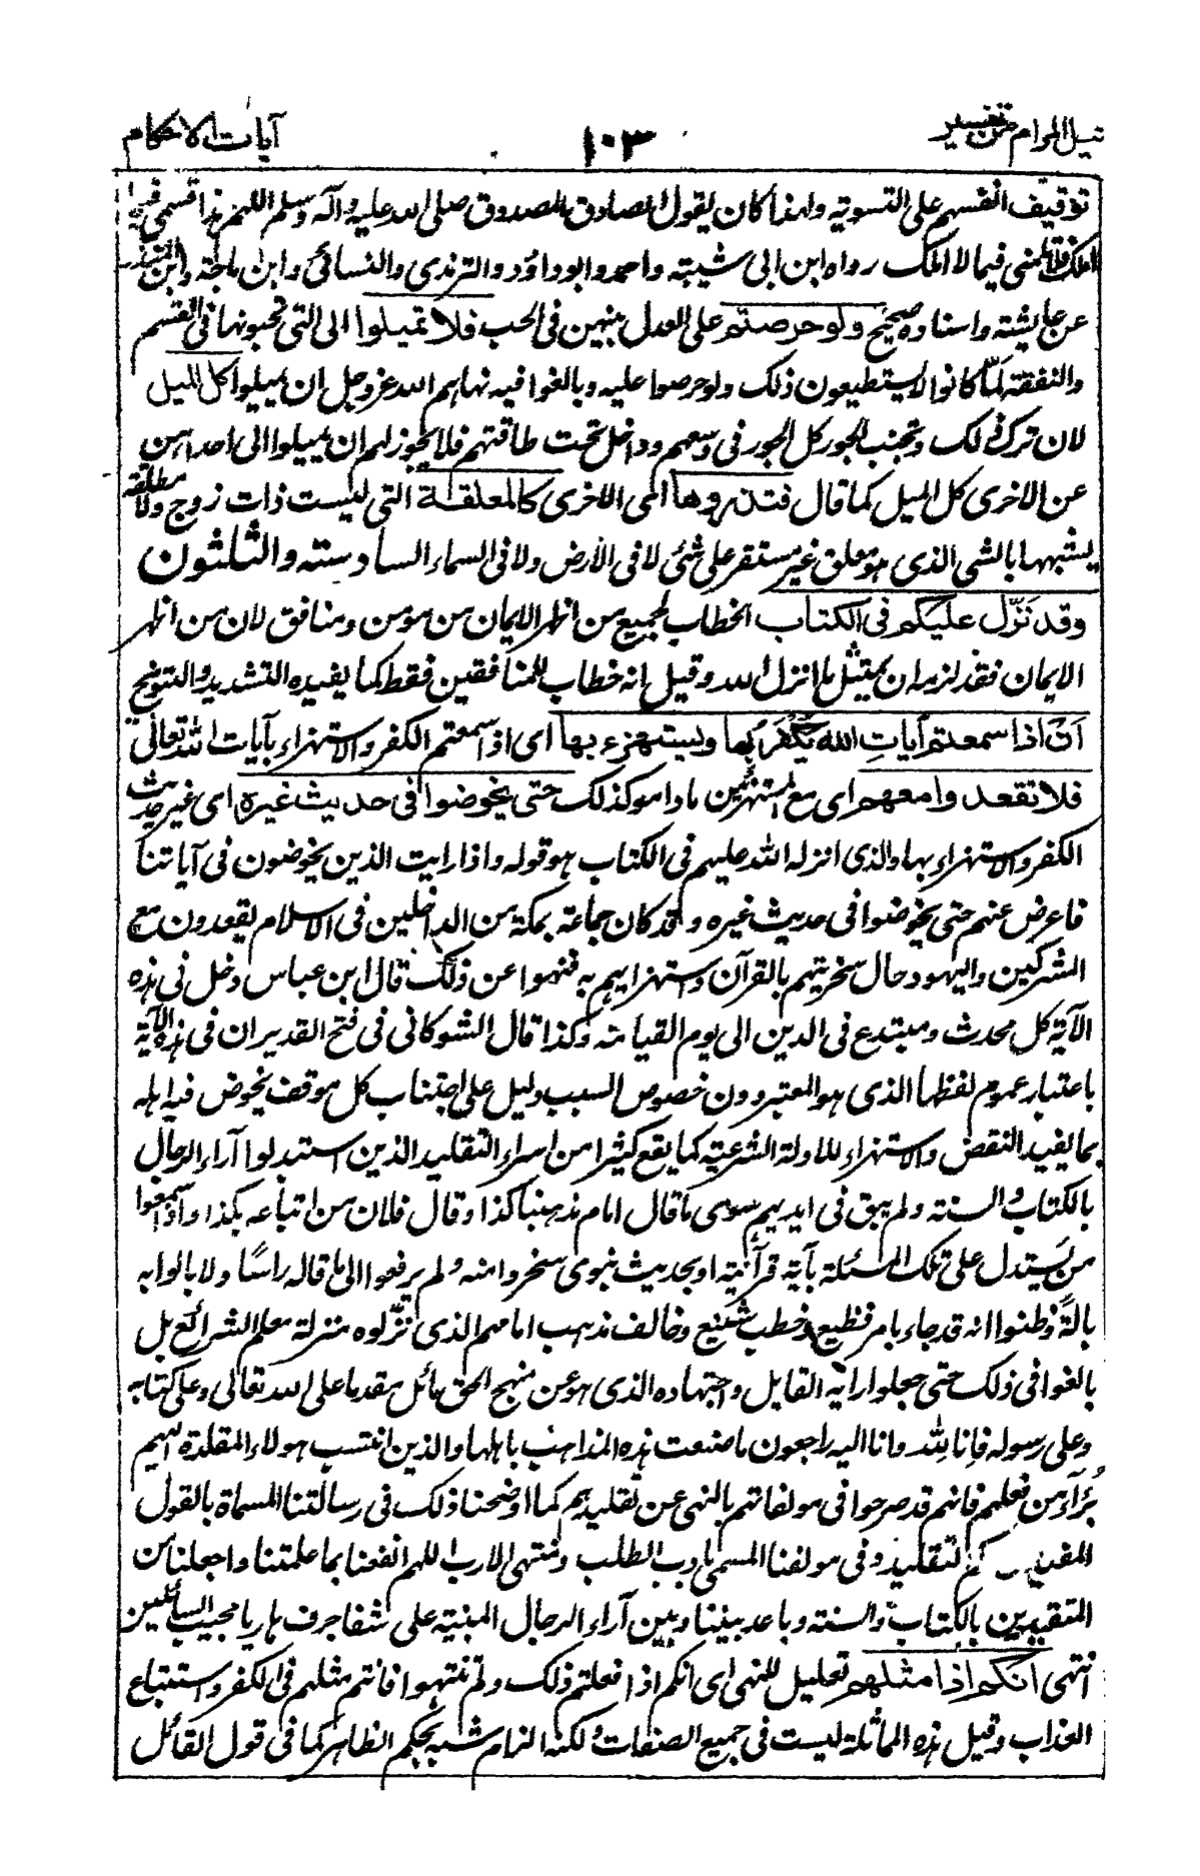 نيل المرام من تفسير ١٠٣ آيات الاحكام
توقيف انفسهم على التسوية ولهذا كان يقول الصادق المصدوق صلى الله عليه وآله وسلم اللهم هذا قسمي فيما
املك فلا تلمنى فيما لا املك رواه ابن ابى شيبته واحمد وابو داؤد والترمذى والنسائى وابن ماجة وابن المنذر
عن عايشته واسناده صحيح ولو حرصتم على العدل بينهن فى الحب فلا تميلوا الى التى تحبونها فى القسم
والنفقة لما كانوا لا يستطيعون ذلك ولو حرصوا عليه وبالغوا فيه نهاهم الله عز وجل ان يميلوا كل الميل
لان ترك ذلك وتجنب الجور كل الجور فى وسعهم وداخل تحت طاقتهم فلا يجوز لهم ان يميلوا الى احداهن
عن الاخرى كل الميل كما قال فتذروها اى الاخرى كالمعلقة التى ليست ذات زوج ولا مطلقة
يشبهها بالشى الذى هو معلق غير مستقر على شئ لا فى الأرض ولا فى السماء السادسته والثلثون
وقد نَزّل عليكم فى الكتاب الخطاب لجميع من اظهر الايمان من مومن ومنافق لان من اظهر
الايمان فقد لزمه ان يمتثل ما انزل الله وقيل انه خطاب للمنافقين فقط كما يفيده التشديد والتوبيخ
اَن اذا سمعتم آيات الله يُكْفَرُ بها ويستهزء بها اى اذا سمعتم الكفر والاستهزاء بآيات الله تعالى
فلا تقعدوا معهم اى مع المستهزئين ما داموا كذلك حتى يخوضوا فى حديث غيره اى غير حديث
الكفر والاستهزاء بها والذى انزله الله عليهم فى الكتاب هو قوله واذا رايت الذين يخوضون فى آياتنا
فاعرض عنهم حتى يخوضوا فى حديث غيره وقد كان جماعة بمكة من الداخلين فى الاسلام يقعدون مع
المشركين واليهود حال سخريتهم بالقرآن واستهزايهم به فنهوا عن ذلك قال ابن عباس دخل فى هذه
الآية كل محدث ومبتدع فى الدين الى يوم القيامته وكذا قال الشوكانى فى فتح القدير ان فى هذه الآية
باعتبار عموم لفظها الذى هو المعتبر دون خصوص السبب دليل على اجتناب كل موقف يخوض فيه اهله
بما يفيد النقض والاستهزاء للادلة الشرعيته كما يقع كثيرا من اسراء التقليد الذين استبدلوا آراء الرجال
بالكتاب والسنته ولم يبق فى ايديهم سوى ما قال امام مذهبنا كذا وقال فلان من اتباعه بكذا واذا سمعوا
من يَستدل على تلك المسئلة بآية قرآنية او بحديث نبوى سخروا منه ولم يرفعوا الى ما قاله راسًا ولا بالوا به
بالةً وظنوا انه قد جاء بامر فظيع وخطب شنيع وخالف مذهب امامهم الذى نزّلوه منزلة معلم الشرائع بل
بالغوا فى ذلك حتى جعلوا رايه القايل واجتهاده الذى هو عن منهج الحق مائل مقدما على الله تعالى وعلى كتابه
وعلى رسوله فإنا لله وانا اليه راجعون ما صنعت هذه المذاهب باهلها والذين انتسب هولاء المقلدة اليهم
بُرآء من فعلهم فانهم قد صرحوا فى مولفاتهم بالنهى عن تقليدهم كما اوضحنا ذلك فى رسالتنا المسماة بالقول
المفيد التقليد وفى مولفنا المسمى بادب الطلب ومنتهى الارب اللهم انفعنا بما علمتنا واجعلنا من
المتقيدين بالكتاب والسنته وباعد بيننا وبين آراء الرجال المبنية على شفا جرف هار يا مجيب السائلين
انتهى انكم اذا مثلهم تعليل للنهى اى انكم اذا فعلتم ذلك ولم تنتهوا فانتم مثلهم فى الكفر واستتباع
العذاب وقيل هذه المماثلة ليست فى جميع الصفات ولكنه الزام شبه بحكم الظاهر كما فى قول القائل